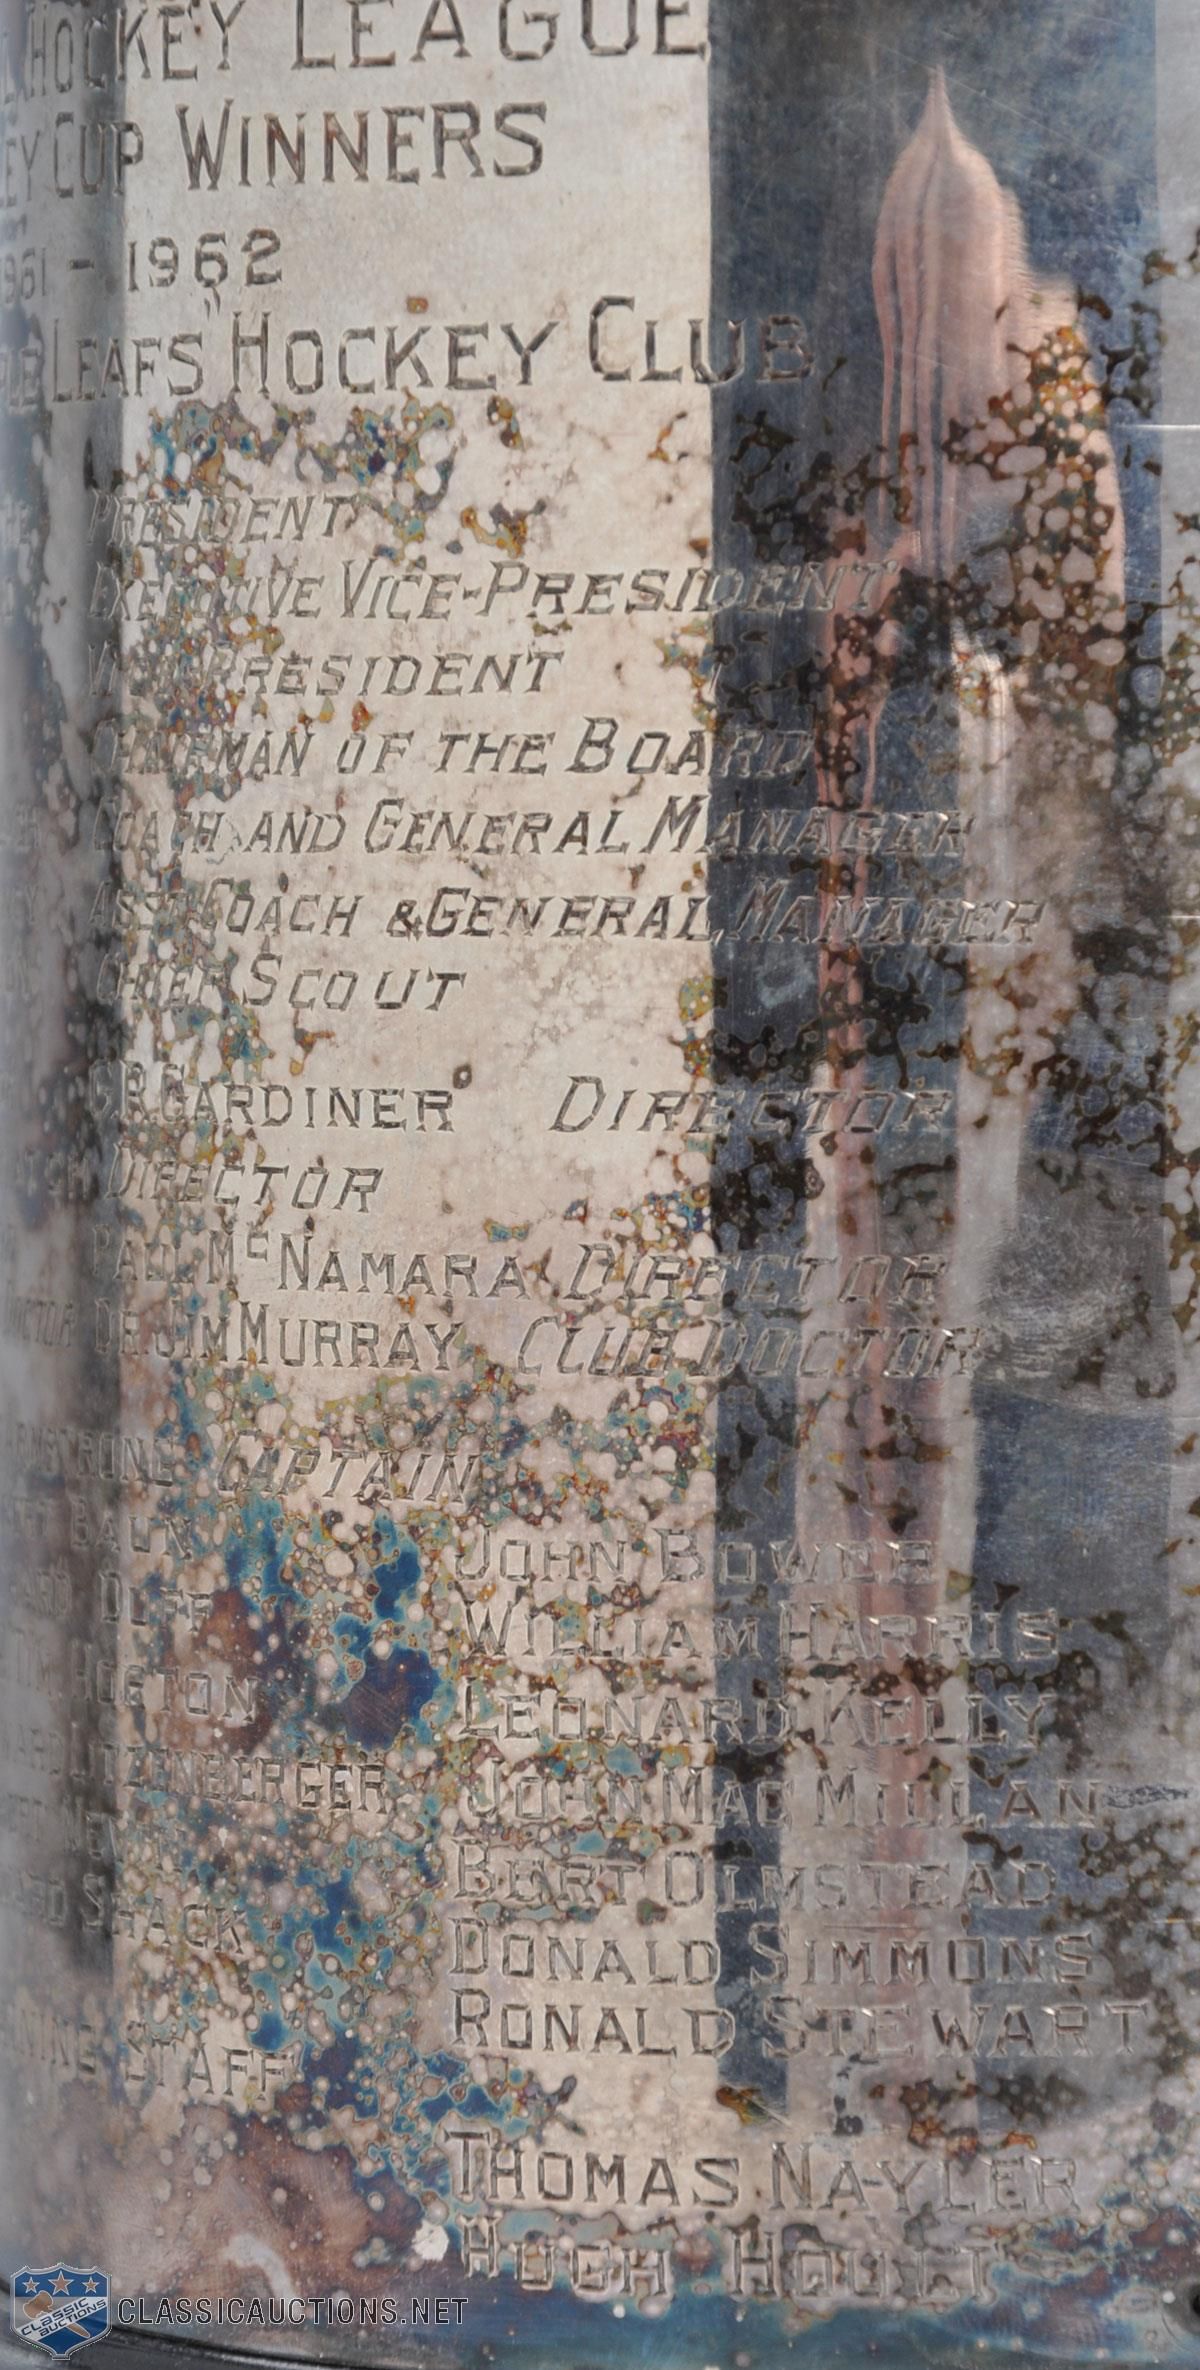 HOCKEY LEAGUE
CUP WINNERS
1961 - 1962
LEAFS" HOCKEY CLUB
PRESIDENT
EXECUTIVE VICE-PRESIDENT
VICE PRESIDENT
CHAIRMAN OF THE BOARD
COACH AND GENERAL MANAGER
ASST. COACH & GENERAL MANAGER
CHIEF SCOUT
G.R. GARDINER DIRECTOR
DIRECTOR
PAUL McNAMARA DIRECTOR
DR. JIM MURRAY CLUB DOCTOR
CAPTAIN
BAUN JOHN BOWER
DUFF WILLIAM HARRIS
HORTON LEONARD KELLY
LITZENBERGER JOHN MACMILLAN
BERT OLMSTEAD
SHACK DONALD SIMMONS
RONALD STEWART
STAFF
THOMAS NAYLER
HUGH HOULT
CLASSIC AUCTIONS
CLASSICAUCTIONS.NET